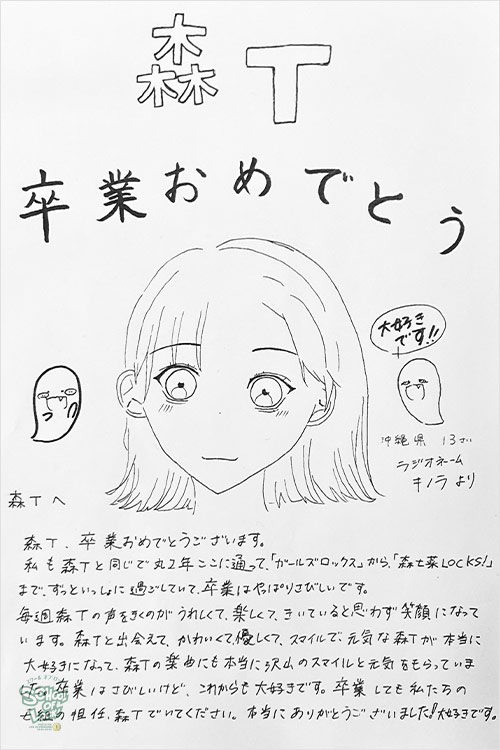 森T
卒業おめでとう
大好き
です!!
沖縄県 13さい
ラジオネーム
キノラより
森Tへ
森T、卒業おめでとうございます。
私も森Tと同じで丸2年ここに通って、「ガールズロックス」から、「森七菜LOCKS!」
まで、ずっといっしょに過ごしていて、卒業はやっぱりさびしいです。
毎週森Tの声をきくのがうれしくて、楽しくて、きいていると思わず笑顔になって
います。森Tと出会えて、かわいくて、優しくて、スマイルで、元気な森Tが本当に
大好きになって、森Tの楽曲にも本当に沢山のスマイルと元気をもらっていま
した。卒業はさびしいけど、これからも大好きです。卒業しても私たちの
七組の担任、森Tでいてください。本当にありがとうございました!大好きです。